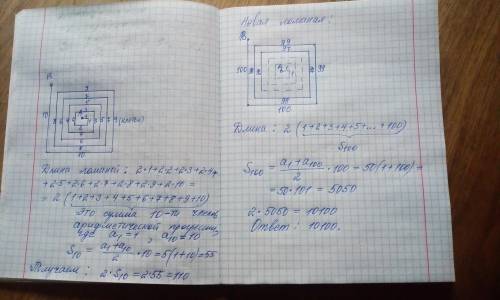 B
9
10
10
(клеток)
Длина ломаной: 2·1+2·2+2·3+2·4+
+2·5+2·6+2·7+2·8+2·9+2·10 =
= 2(1+2+3+4+5+6+7+8+9+10)
Это сумма 10-ти член.
арифметической прогрессии,
где a₁=1, a₁₀=10
S₁₀ = (a₁+a₁₀)/2 · 10 = 5(1+10)=55
Получаем: 2·S₁₀ = 2·55 = 110
Новая ломаная:
B
99
97
100
99
98
100
Длина: 2(1+2+3+4+5+...+100)
S₁₀₀
S₁₀₀ = (a₁+a₁₀₀)/2 · 100 = 50(1+100) =
= 50·101 = 5050
2·5050 = 10100
Ответ: 10100.